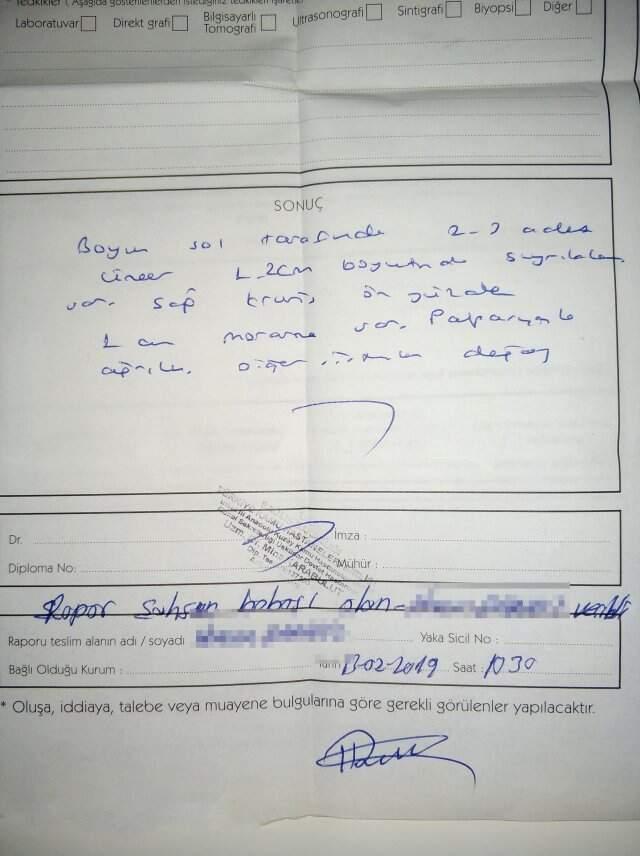 * Tetkikler ( Aşağıda gösterilenlerden istediğiniz tetkikleri işaretle
Laboratuvar Direkt grafi Bilgisayarlı Tomografi Ultrasonografi Sintigrafi Biyopsi Diğer
SONUÇ
Boyun sol tarafında 2-3 adet
lineer 1-2cm boyutunda sıyrıklar
var. Sağ ön yüzde
1 cm morarma var. Palpasyonla
ağrılı. Diğer doğal
Dr. İmza :
Diploma No: Mühür :
Rapor Şahsın babası olan verildi
Raporu teslim alanın adı / soyadı Yaka Sicil No :
Bağlı Olduğu Kurum : Tarih 13-02-2019 Saat : 10 30
* Oluşa, iddiaya, talebe veya muayene bulgularına göre gerekli görülenler yapılacaktır.